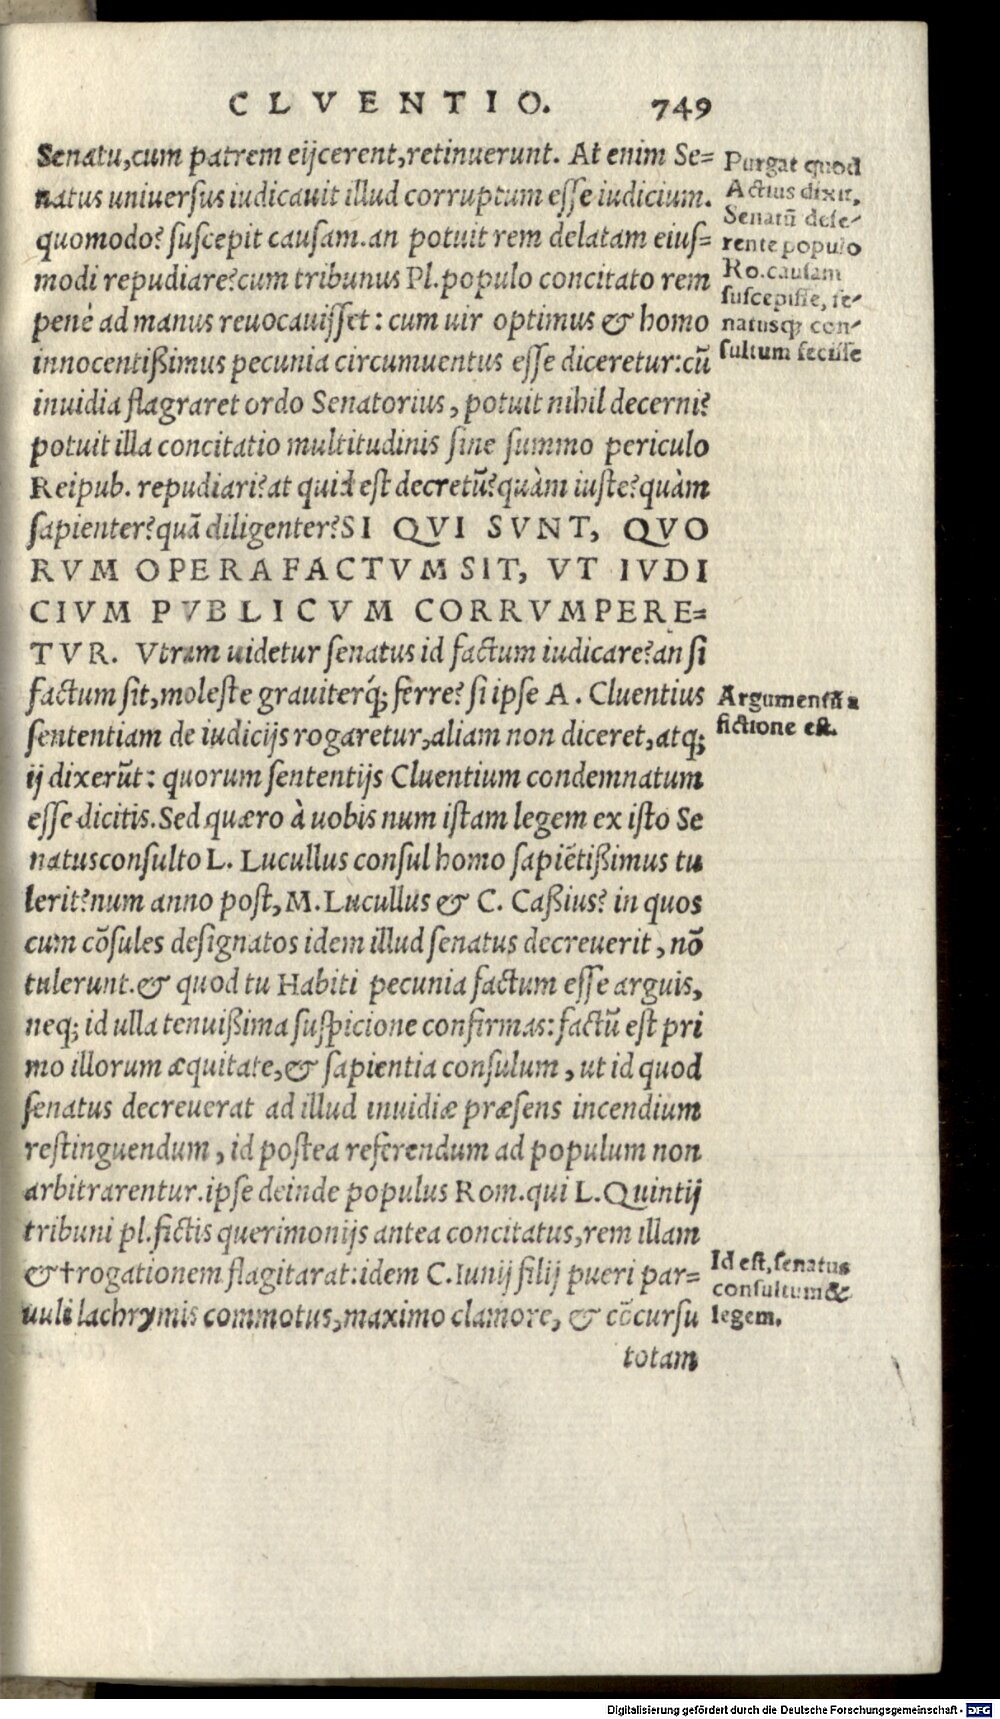 CLVENTIO. 749
Senatu,cum patrem eijcerent,retinuerunt. At enim Se=
natus uniuersus iudicauit illud corruptum esse iudicium.
quomodo? suscepit causam.an potuit rem delatam eius=
modi repudiare?cum tribunus Pl.populo concitato rem
penè ad manus reuocauisset: cum uir optimus & homo
innocentißimus pecunia circumuentus esse diceretur:cū
inuidia flagraret ordo Senatorius, potuit nihil decerni?
potuit illa concitatio multitudinis sine summo periculo
Reipub. repudiari?at quid est decretū?quàm iuste?quàm
sapienter?quā diligenter?SI QVI SVNT, QVO
RVM OPERA FACTVM SIT, VT IVDI
CIVM PVBLICVM CORRVMPERE=
TVR. Vtrum uidetur senatus id factum iudicare?an si
factum sit,moleste grauiterq́; ferre? si ipse A. Cluentius
sententiam de iudicijs rogaretur,aliam non diceret,atq;
ij dixerūt: quorum sententijs Cluentium condemnatum
esse dicitis.Sed quæro à uobis num istam legem ex isto Se
natusconsulto L. Lucullus consul homo sapiētißimus tu
lerit?num anno post,M.Lucullus & C. Caßius? in quos
cum cōsules designatos idem illud senatus decreuerit, nō
tulerunt.& quod tu Habiti pecunia factum esse arguis,
neq; id ulla tenuißima suspicione confirmas:factū est pri
mo illorum æquitate,& sapientia consulum, ut id quod
senatus decreuerat ad illud inuidiæ præsens incendium
restinguendum, id postea referendum ad populum non
arbitrarentur.ipse deinde populus Rom.qui L.Quintij
tribuni pl.fictis querimonijs antea concitatus,rem illam
&†rogationem flagitarat:idem C.Iunij filij pueri par=
uuli lachrymis commotus,maximo clamore, & cōcursu
totam
Purgat quod
Actius dixit,
Senatū defe-
rente populo
Ro.causam
suscepisse, se-
natusq; con-
sultum fecisse
Argumentū a
fictione est.
Id est,senatus
consultum &
legem.
Digitalisierung gefördert durch die Deutsche Forschungsgemeinschaft - DFG